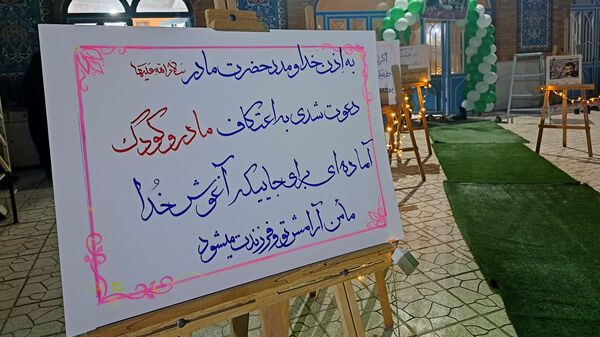 به اذن خدا و مدد حضرت مادر سلام الله علیها
دعوت شدی به اعتکاف مادر و کودک
آماده‌ای برای جاییکه آغوش خدا
مأمن آرامش تو و فرزندت میشود